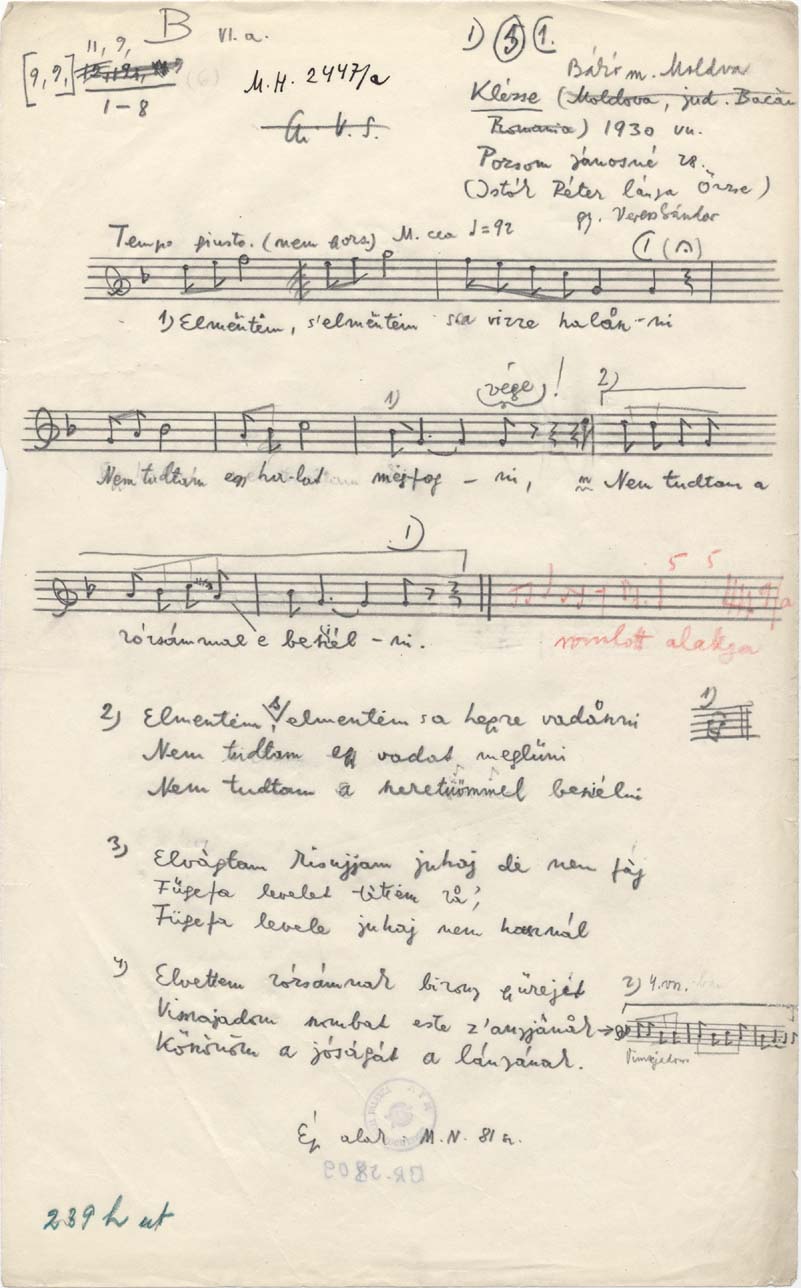 B VI.a.
11, 9,
[9, 9,] (6)
1–8
M.H. 2447/a
1) 5 1.
Bákó m. Moldva
Klézse (Moldova, jud. Bacău
Romania) 1930 VII.
Pozsom Jánosné 28.
(Istók Péter lánya Örzse)
gy. Veress Sándor
Tempo giusto. (nem gors.) M. cca ♩=92
1) Elmëntëm, s'elmëntëm s a vizre halån-ni
1) (vége)! 2)
Nem tudtam egy ha-lat mëgfog - ni, Nem tudtam a
1)
5 5
rózsámmal e beszél - ni.
romlott alakja
2) Elmentém, s elmentém s a hegyre vadåkni
1)
Nem tudtam egy vadat meglűni
Nem tudtam a szeretüömmel beszélni
3) Elvågtam kisujjam juhaj de nem fáj
Fügefa levelet tëttem rá;
Fügefa levele juhaj nem használ
4) Elvettem rózsámnak bizony gürejét
2) 4. vsz.
Visszajadom szombat este z'anyjånåk →
Visszajadom
Köszönöm a jóságát a lányának.
Ép alak: M.N. 81 sz.
239 h ut